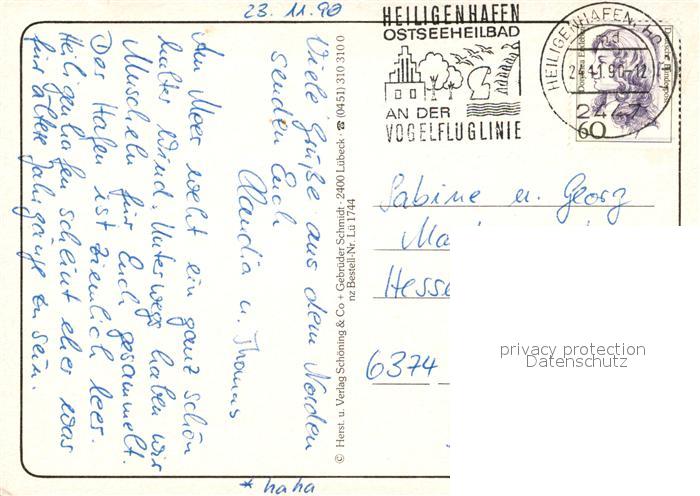 23.11.90
Viele Grüße aus dem Norden
senden Euch
Claudia u. Thomas
Am Meer weht ein ganz schön
kalter Wind. Unterwegs haben wir
Muscheln für Euch gesammelt.
Der Hafen ist ziemlich leer.
Heiligenhafen scheint eher was
für ältere Jahrgänge zu sein.
* haha
© Herst. u. Verlag Schöning & Co + Gebrüder Schmidt · 2400 Lübeck · ☎ (0451) 310 310 0
nz Bestell-Nr. Lü 1744
HEILIGENHAFEN
OSTSEEHEILBAD
AN DER
VOGELFLUGLINIE
HEILIGENHAFEN, Ho
nd
24.11.90-12
2447
60
Sabine u. Georg
Ma
Hesse
6374
privacy protection
Datenschutz